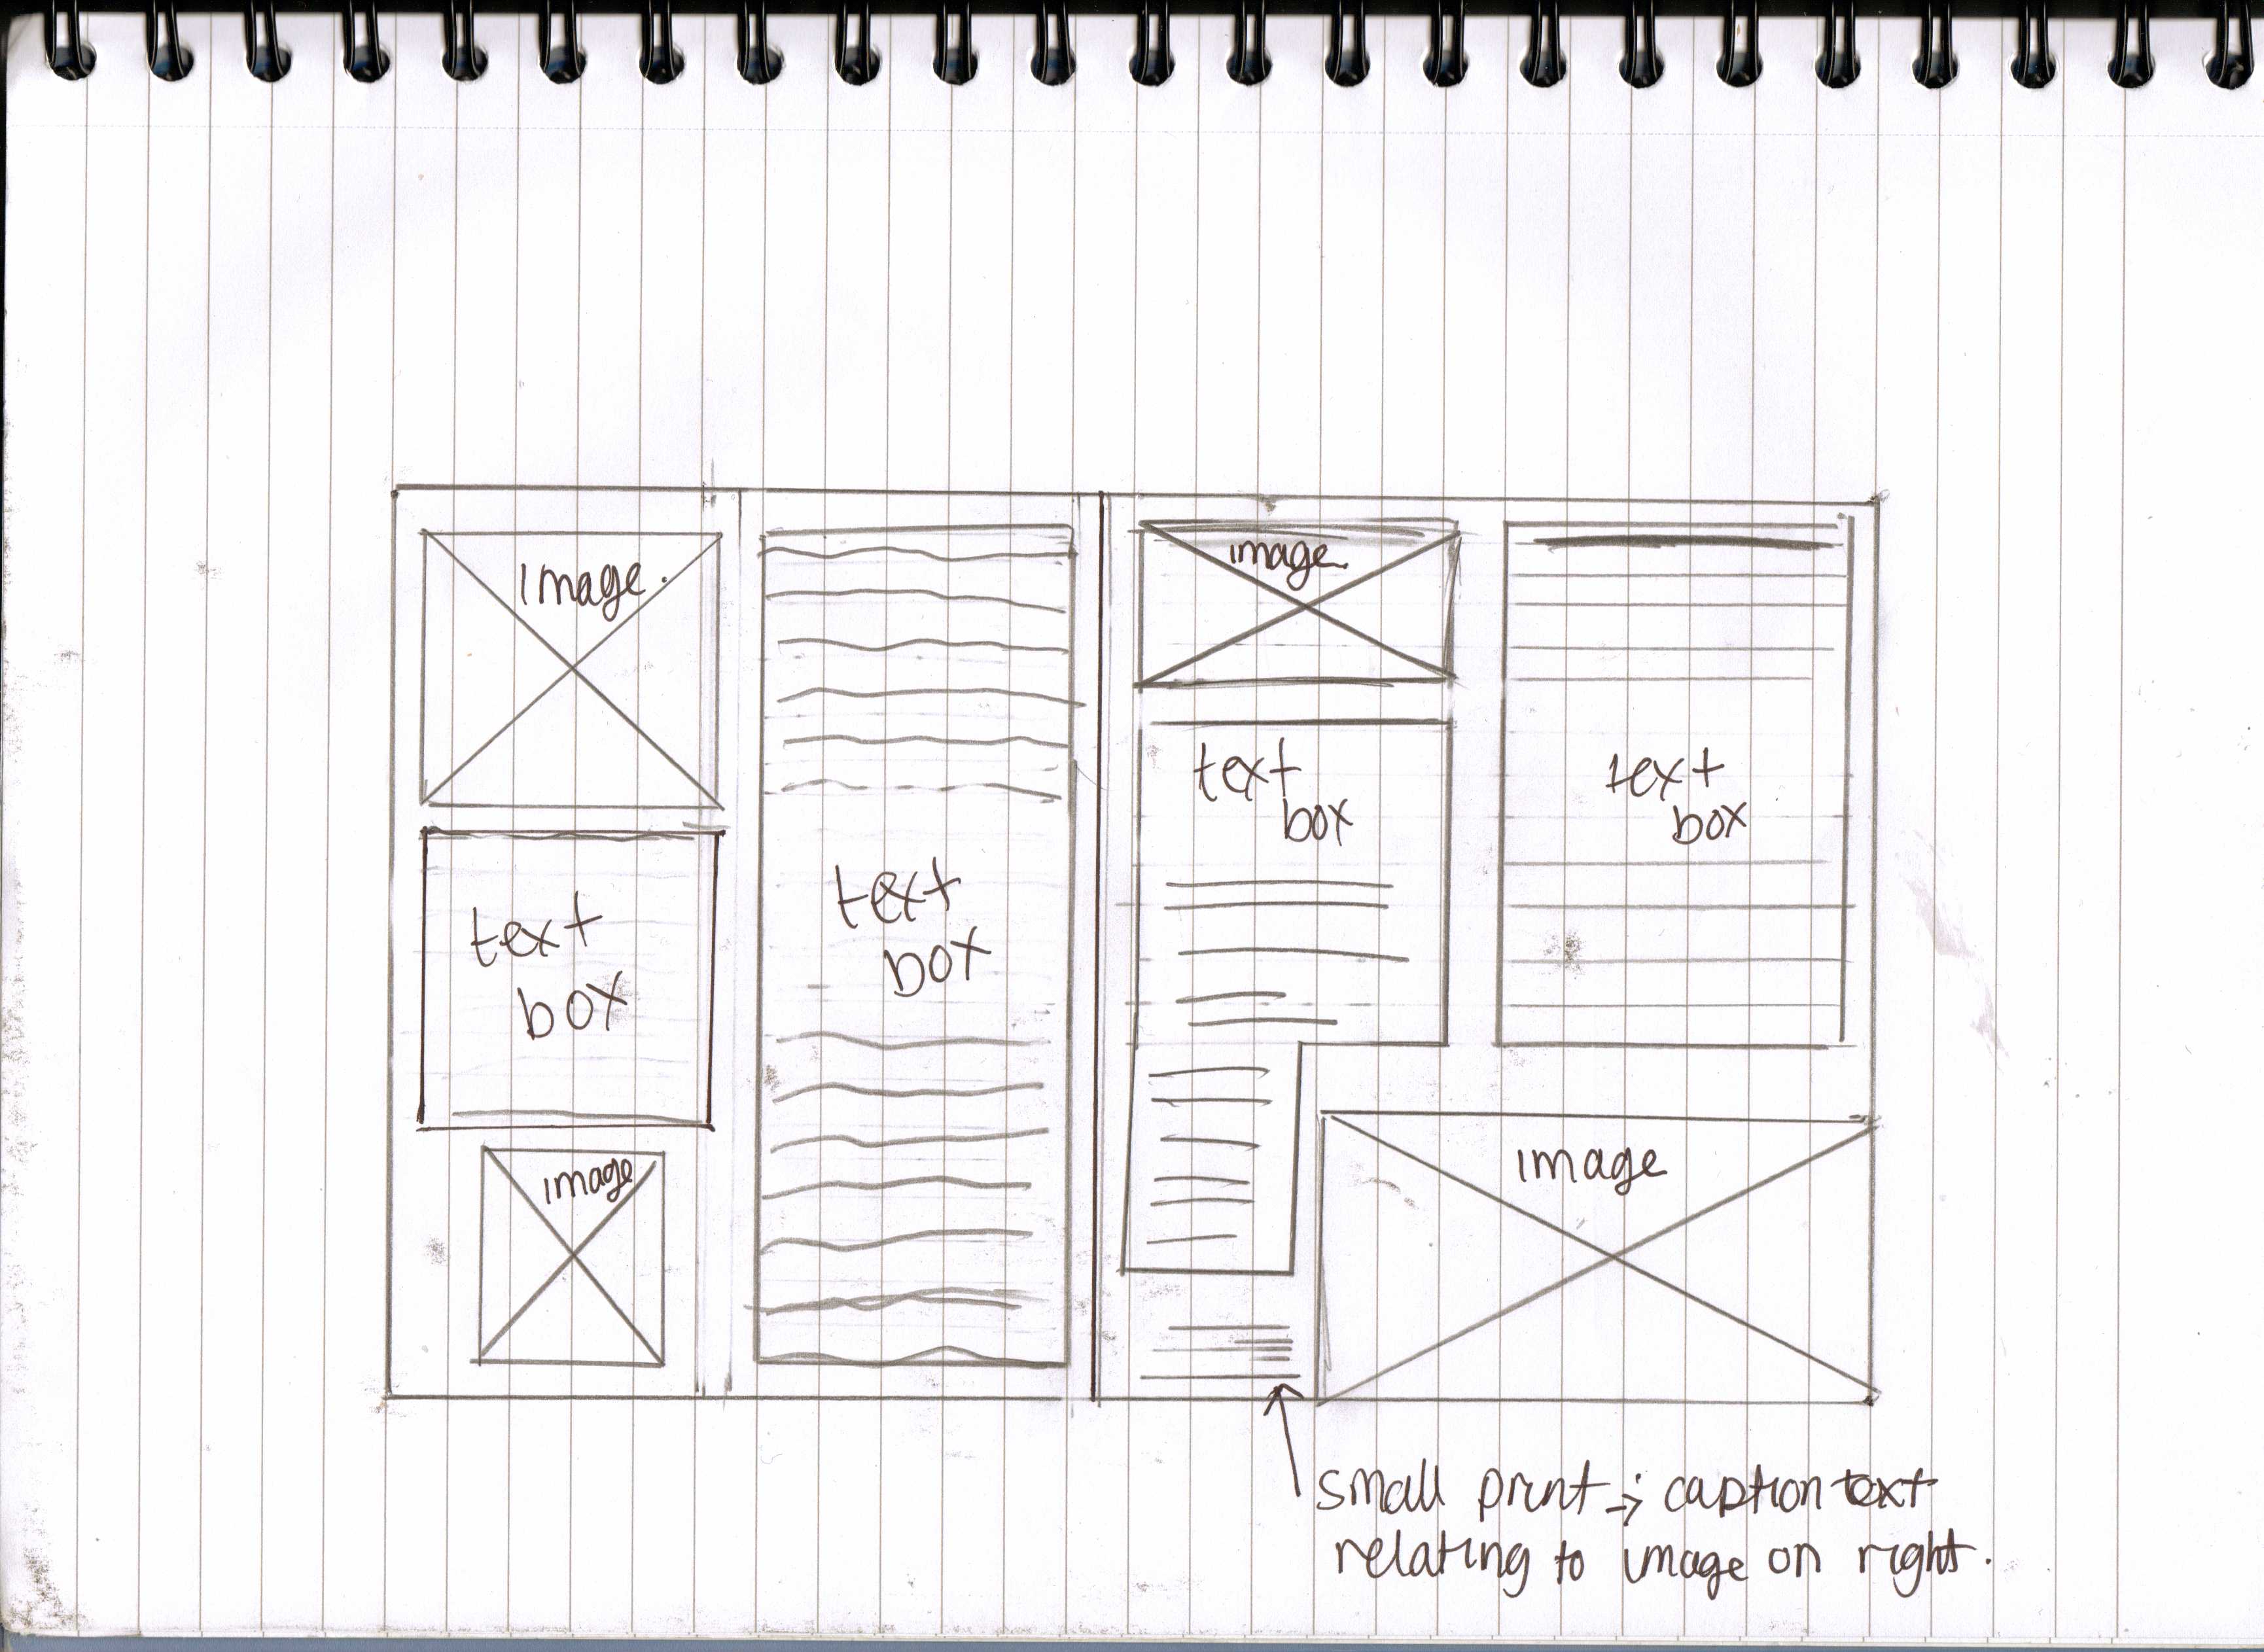 image.
text
box
image
text
box
image
text
box
text
box
image
small print -> caption text
relating to image on right.